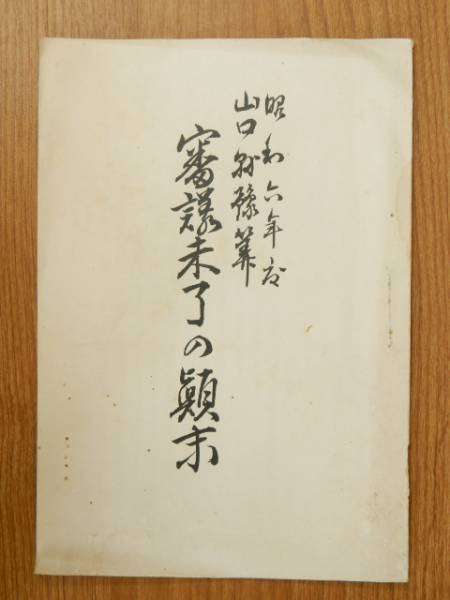 昭和六年度
山口縣豫算
審議未了の顛末